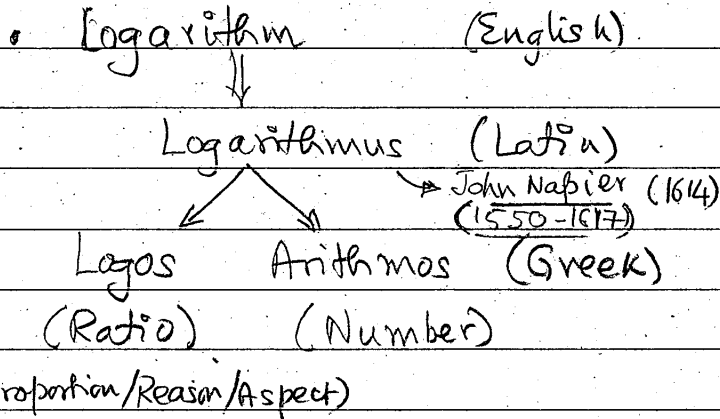 • Logarithm (English)
Logarithmus (Latin)
John Napier (1614)
(1550-1617)
Logos Arithmos (Greek)
(Ratio) (Number)
roportion/Reason/Aspect)